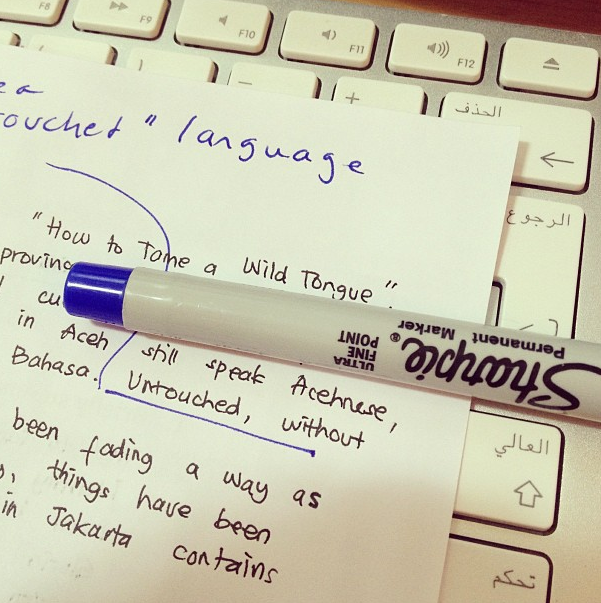 F8
F9
F10
F11
F12
الحذف
الرجوع
العالي
تحكم
ouched" language
"How to Tame a Wild Tongue".
proving
cu
in Aceh still speak Acehnese,
Bahasa. Untouched, without
been fading a way as
things have been
in Jakarta contains
Sharpie®
Permanent Marker
ULTRA
FINE
POINT